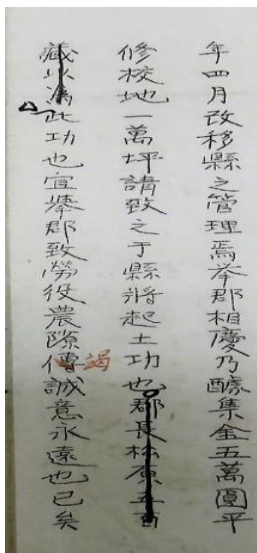 年四月改移縣之管理焉挙郡相慶乃醵集金五萬圓平
修校地一萬坪請致之于縣將起土功也郡長松原五百
藏以為此功也宜挙郡致勞役農隙傳誠意永遠也已矣
竭